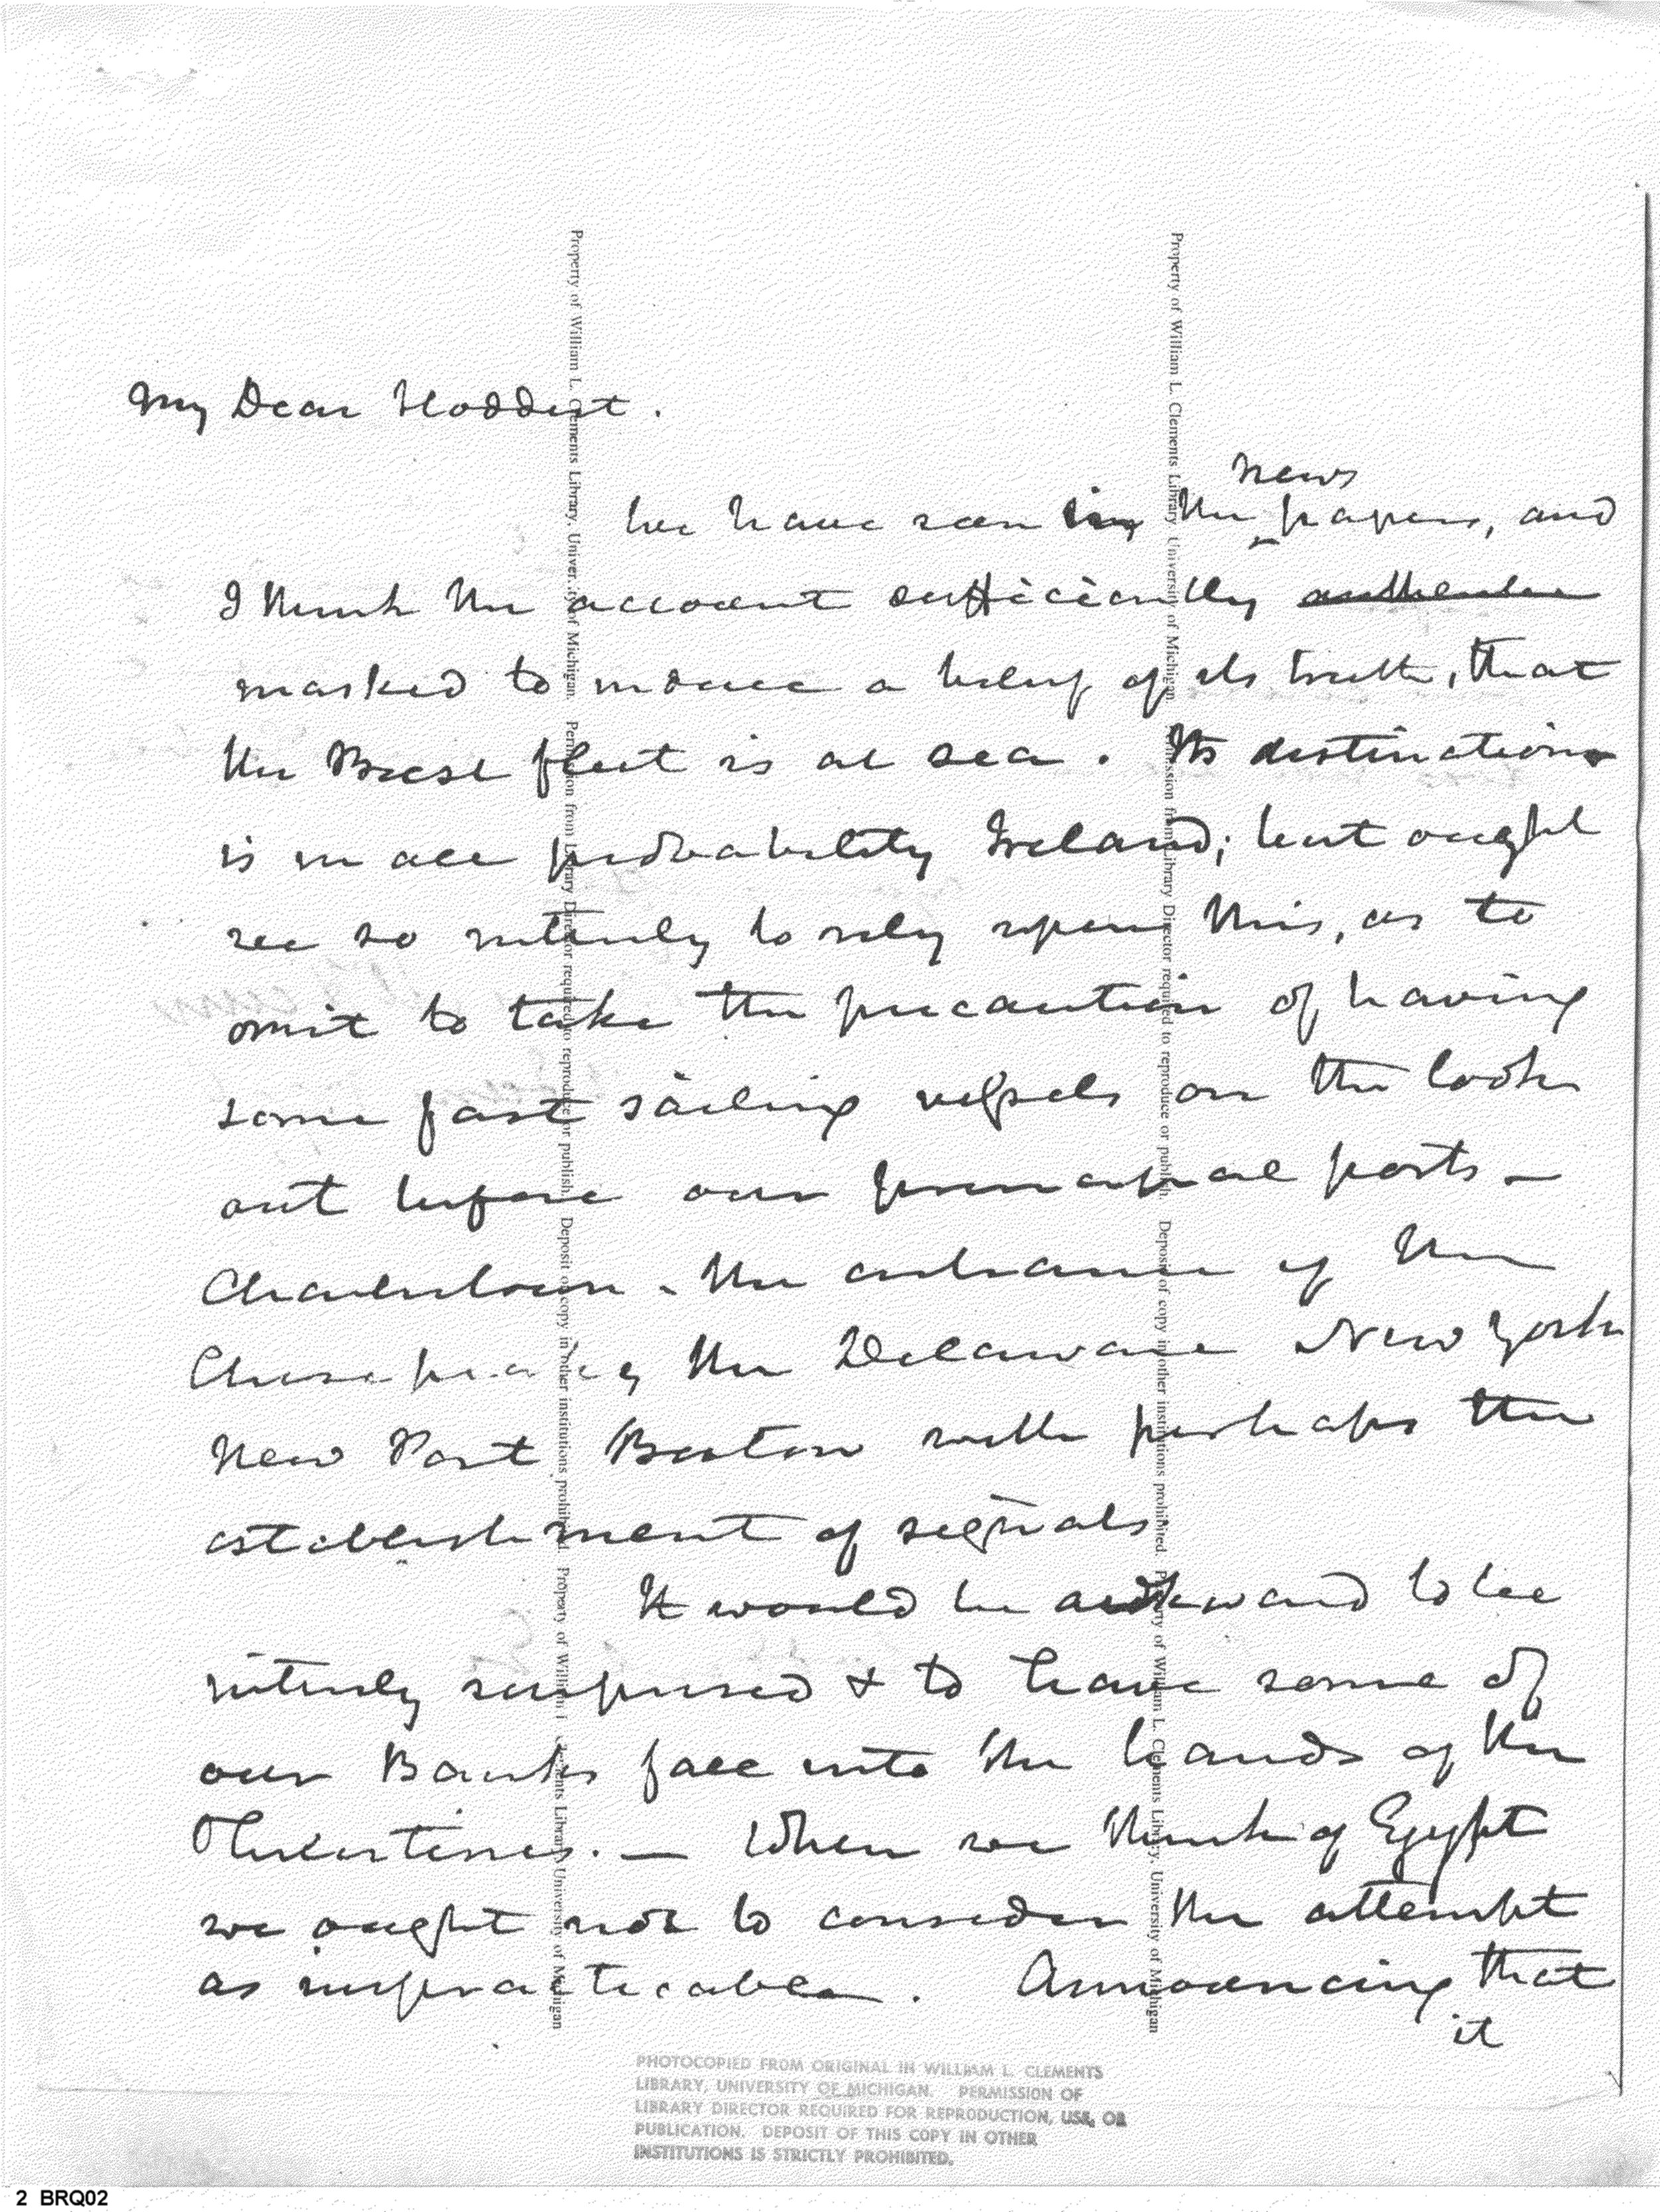 My Dear Stoddert.
news
We have seen in the papers, and
I think the account sufficiently
marked to induce a belief of its truth, that
the Brest fleet is at sea. Its destination
is in all probability Ireland; but ought
we so intirely to rely upon this, as to
omit to take the precaution of having
some fast sailing vessels on the look
out before our principal ports –
Charlestown. the entrance of the
Chesapeake, the Delaware New York
New Port Boston with perhaps the
establishment of signals.
It would be awkward to be
intirely surprised & to have some of
our Banks fall into the hands of the
. — When we think of Egypt
we ought not to consider the attempt
as impracticable. Announcing that
it
Property of William L. Clements Library, University of Michigan. Permission from Library Director required to reproduce or publish. Deposit of copy in other institutions prohibited. Property of William L. Clements Library, University of Michigan
Property of William L. Clements Library, University of Michigan. Permission from Library Director required to reproduce or publish. Deposit of copy in other institutions prohibited. Property of William L. Clements Library, University of Michigan
PHOTOCOPIED FROM ORIGINAL IN WILLIAM L. CLEMENTS
LIBRARY, UNIVERSITY OF MICHIGAN. PERMISSION OF
LIBRARY DIRECTOR REQUIRED FOR REPRODUCTION, USE, OR
PUBLICATION. DEPOSIT OF THIS COPY IN OTHER
INSTITUTIONS IS STRICTLY PROHIBITED.
2 BRQ02